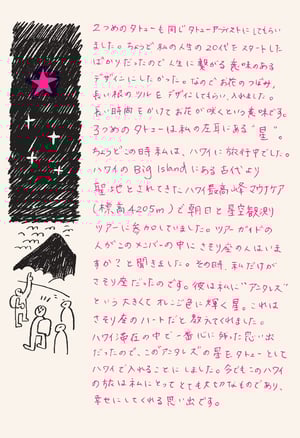 2つめのタトゥーも同じタトゥーアーティストにしてもらい
ました。ちょうど私の人生の20代をスタートした
ばかりだったので人生に繋がる意味のある
デザインにしたかった。なのでお花のつぼみ、
長い根のツルをデザインしてもらい、入れました。
長い時間をかけてお花が咲くという意味です。
3つめのタトゥーは私の左耳にある"星"。
ちょうどこの時私は、ハワイに旅行中でした。
ハワイの Big Island にある古代より
聖地とされてきたハワイ最高峰マウナケア
(標高4205m)で朝日と星空観測
ツアーに参加していました。ツアーガイドの
人がこのメンバーの中にさそり座の人はいま
すか？と聞きました。その時、私だけが
さそり座だったのです。彼は私に"アンタレス"
という大きくてオレンジ色に輝く星。これは
さそり座のハートだと教えてくれました。
ハワイ滞在の中で一番心に飾った思い出
だったので、この"アンタレス"の星をタトゥーとして
ハワイで入れることにしました。今でもこのハワイ
の旅は私にとってとても大切なものであり、
幸せにしてくれる思い出です。